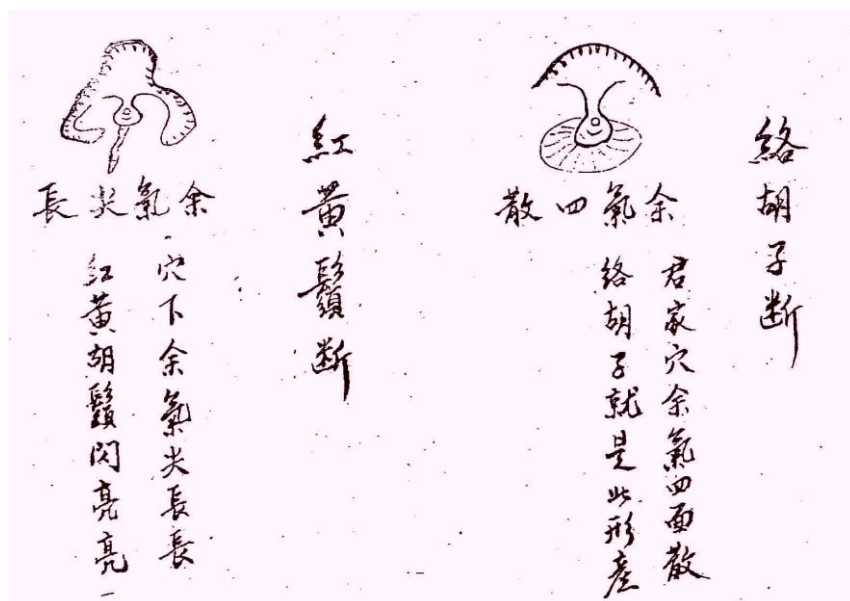 絡胡子断
余氣四散
君家穴余氣四面散
絡胡子就是此形産
紅黃鬚断
余氣尖長
穴下余氣尖長長
紅黃胡鬚閃亮亮